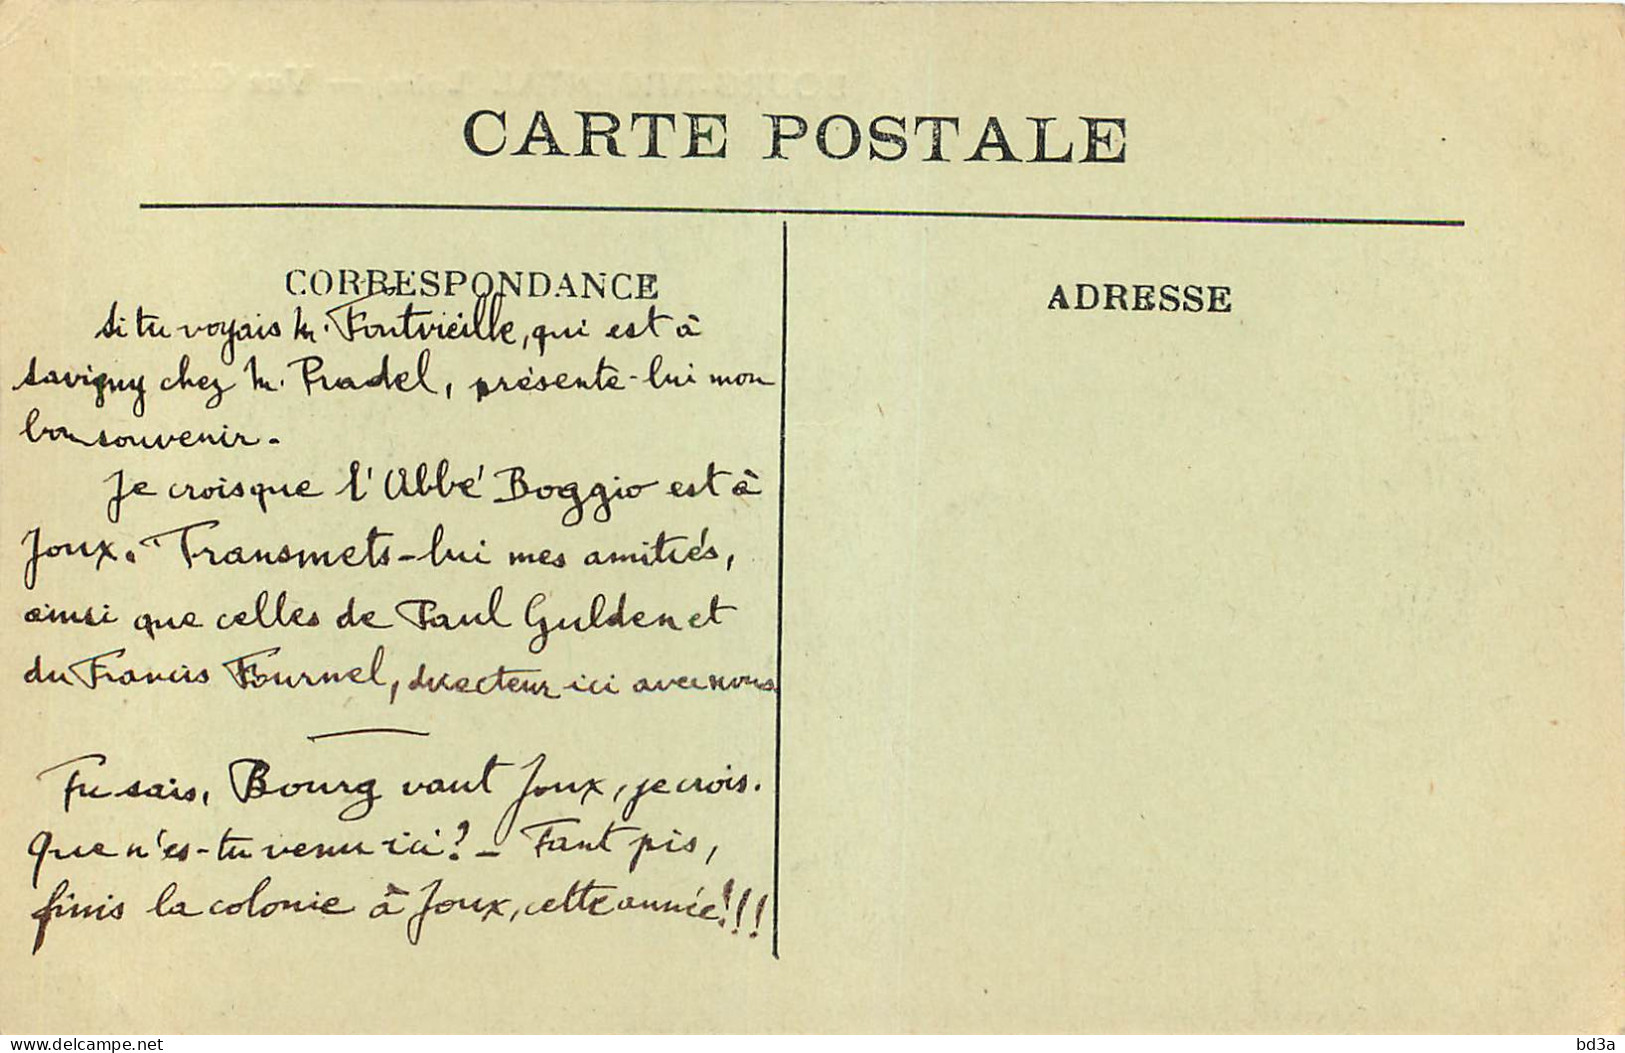 CARTE POSTALE
CORRESPONDANCE
ADRESSE
Si tu voyais M. Fontvieille, qui est à
Savigny chez M. Pradel, présente-lui mon
bon souvenir.
Je crois que l'Abbé Boggio est à
Joux. Transmets-lui mes amitiés,
ainsi que celles de Paul Gulden et
du Francis Fournel, directeur ici avec nous
Tu sais, Bourg vaut Joux, je crois.
Que n'es-tu venu ici? - Tant pis,
finis la colonie à Joux, cette année!!!
delcampe.net
bd3a